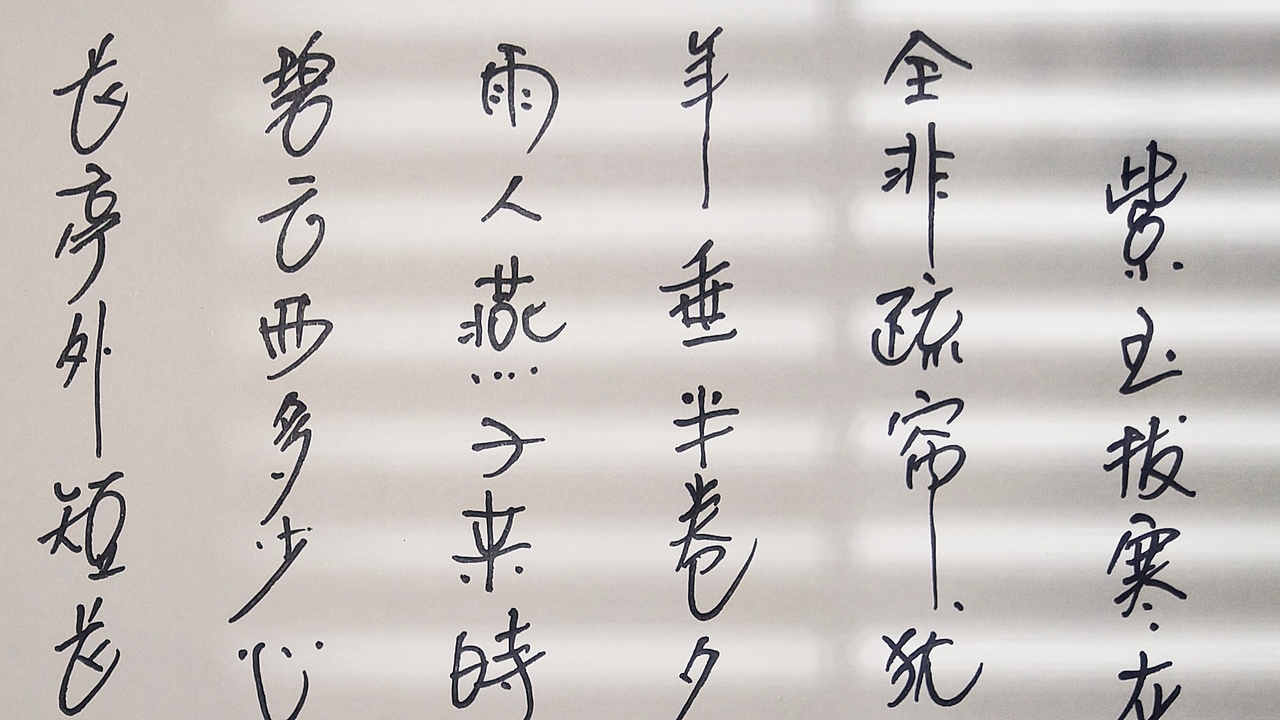 紫玉拨寒在
全非疏帘犹
半垂半卷夕
雨人燕子来時
碧云西多少心
长亭外短长